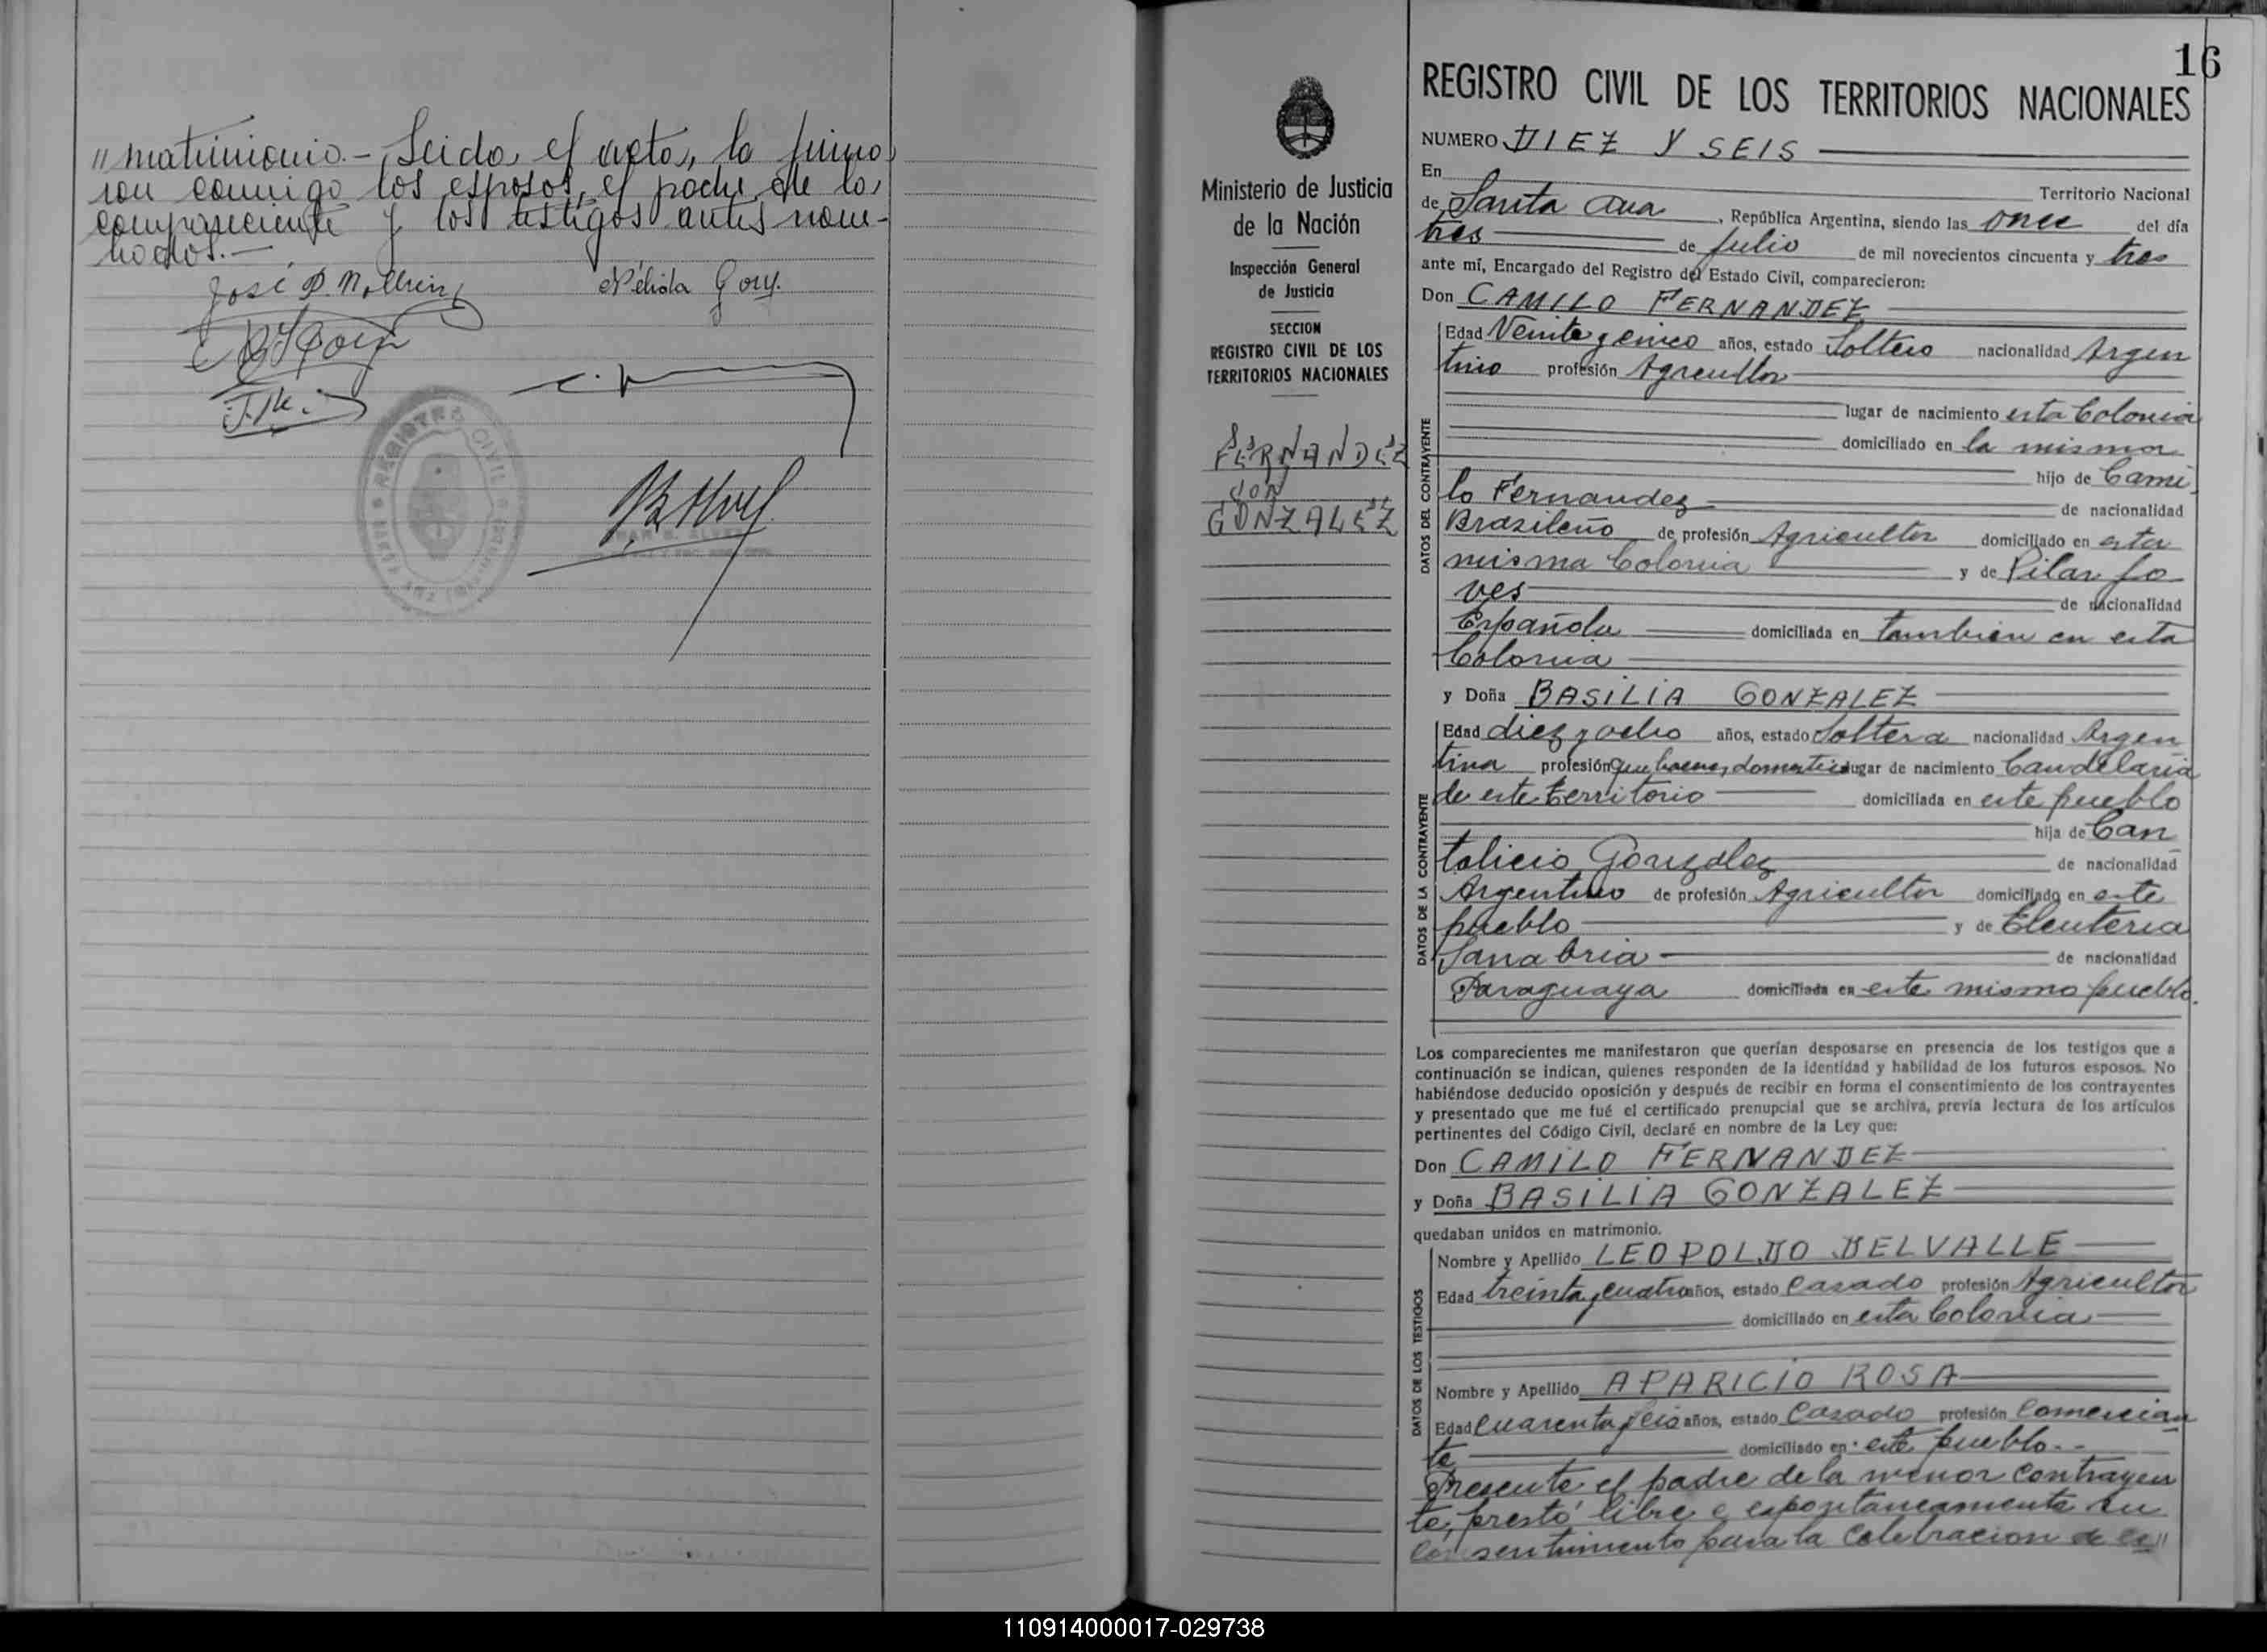 " matrimonio.- Leida el acta, la firma
ron conmigo los esposos, el padre de la
compareciente y los testigos antes nom-
brados.-
Nélida Gory.
REGISTRO CIVIL
16
REGISTRO CIVIL DE LOS TERRITORIOS NACIONALES
Ministerio de Justicia
de la Nación
Inspección General
de Justicia
SECCION
REGISTRO CIVIL DE LOS
TERRITORIOS NACIONALES
FERNANDEZ
CON
GONZALEZ
NUMERO DIEZ Y SEIS
En Territorio Nacional
de Santa Ana, República Argentina, siendo las once del día
tres de Julio de mil novecientos cincuenta y tres
ante mí, Encargado del Registro del Estado Civil, comparecieron:
Don CAMILO FERNANDEZ
DATOS DEL CONTRAYENTE
Edad Veinte y cinco años, estado Soltero nacionalidad Argen
tino profesión Agricultor
lugar de nacimiento esta Colonia
domiciliado en la misma
hijo de Cami
lo Fernandez de nacionalidad
Brasileño de profesión Agricultor domiciliado en esta
misma Colonia y de Pilar Jo
ves de nacionalidad
Española domiciliada en tambien en esta
Colonia
y Doña BASILIA GONZALEZ
DATOS DE LA CONTRAYENTE
Edad diez y ocho años, estado Soltera nacionalidad Argen
tina profesión Quehaceres domesticos lugar de nacimiento Candelaria
de este territorio domiciliada en este pueblo
hija de Can
talicio Gonzalez de nacionalidad
Argentino de profesión Agricultor domiciliado en este
pueblo y de Eleuteria
Sanabria de nacionalidad
Paraguaya domiciliada en este mismo pueblo.
Los comparecientes me manifestaron que querían desposarse en presencia de los testigos que a
continuación se indican, quienes responden de la identidad y habilidad de los futuros esposos. No
habiéndose deducido oposición y después de recibir en forma el consentimiento de los contrayentes
y presentado que me fué el certificado prenupcial que se archiva, previa lectura de los artículos
pertinentes del Código Civil, declaré en nombre de la Ley que:
Don CAMILO FERNANDEZ
y Doña BASILIA GONZALEZ
quedaban unidos en matrimonio.
DATOS DE LOS TESTIGOS
Nombre y Apellido LEOPOLDO DELVALLE
Edad treinta y cuatro años, estado Casado profesión Agricultor
domiciliado en esta Colonia
Nombre y Apellido APARICIO ROSA
Edad Cuarenta y seis años, estado Casado profesión Comercian
te domiciliado en este pueblo.-
Presente el padre de la menor contrayen
te, prestó libre e espontaneamente su
consentimiento para la celebracion de es"
110914000017-029738